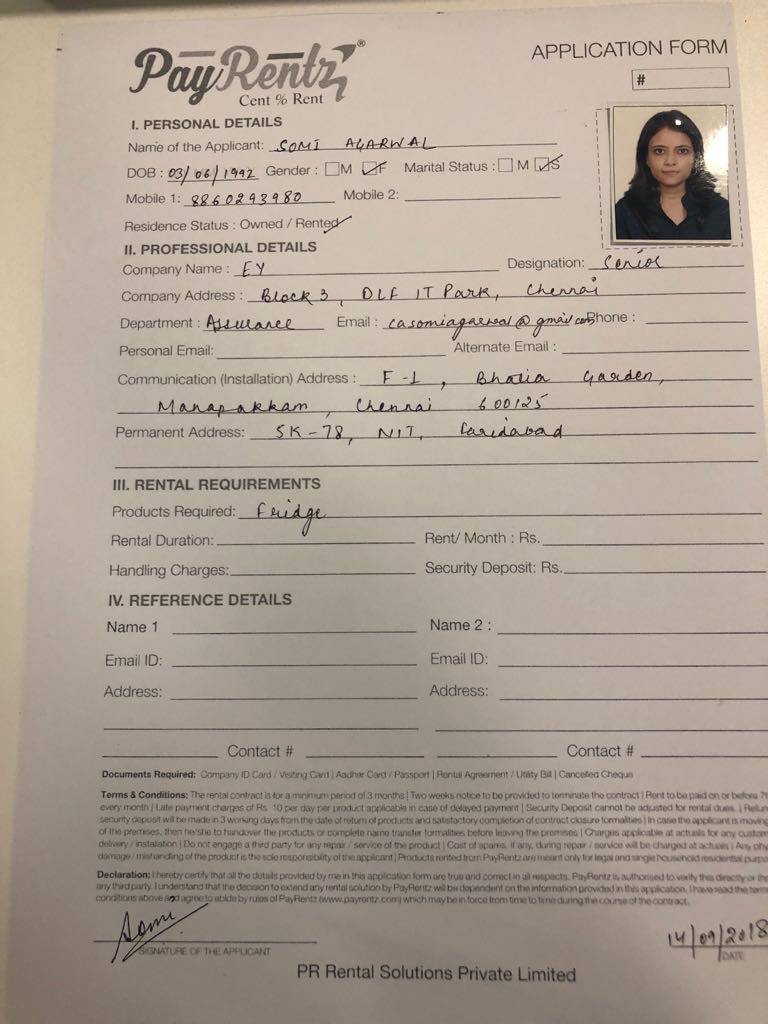 PayRentz®
Cent % Rent
APPLICATION FORM
#
I. PERSONAL DETAILS
Name of the Applicant: SOMI AGARWAL
DOB : 03/06/1992 Gender : M F Marital Status : M S
Mobile 1: 8860293980 Mobile 2:
Residence Status : Owned / Rented
II. PROFESSIONAL DETAILS
Company Name : EY Designation: Senior
Company Address : Block 3, DLF IT Park, Chennai
Department : Assurance Email : casomiagarwal@gmail.com Phone :
Personal Email: Alternate Email :
Communication (Installation) Address : F-1, Bhatia Garden,
Manapakkam, Chennai 600125
Permanent Address: 5K-78, NIT, Faridabad
III. RENTAL REQUIREMENTS
Products Required: Fridge
Rental Duration: Rent/ Month : Rs.
Handling Charges: Security Deposit: Rs.
IV. REFERENCE DETAILS
Name 1 Name 2 :
Email ID: Email ID:
Address: Address:
Contact # Contact #
Documents Required: Company ID Card / Visiting Card | Aadhar Card / Passport | Rental Agreement / Utility Bill | Cancelled Cheque
Terms & Conditions: The rental contract is for a minimum period of 3 months | Two weeks notice to be provided to terminate the contract | Rent to be paid on or before 7t
every month | Late payment charges of Rs. 10 per day per product applicable in case of delayed payment | Security Deposit cannot be adjusted for rental dues. | Refun
security deposit will be made in 3 working days from the date of return of products and satisfactory completion of contract closure formalities | In case the applicant is moving
of the premises, then he/she to handover the products or complete name transfer formalities before leaving the premises | Charges applicable at actuals for any custom
delivery / installation | Do not engage a third party for any repair / service of the product | Cost of spares, if any, during repair / service will be charged at actuals | Any phy
damage / mishandling of the product is the sole responsibility of the applicant | Products rented from PayRentz are meant only for legal and single household residential purpo
Declaration: I hereby certify that all the details provided by me in this application form are true and correct in all respects. PayRentz is authorised to verify this directly or thr
any third party. I understand that the decision to extend any rental solution by PayRentz will be dependent on the information provided in this application. I have read the term
conditions above and agree to abide by rules of PayRentz (www.payrentz.com) which may be in force from time to time during the course of the contract.
Somi
14/09/2018
SIGNATURE OF THE APPLICANT
DATE
PR Rental Solutions Private Limited